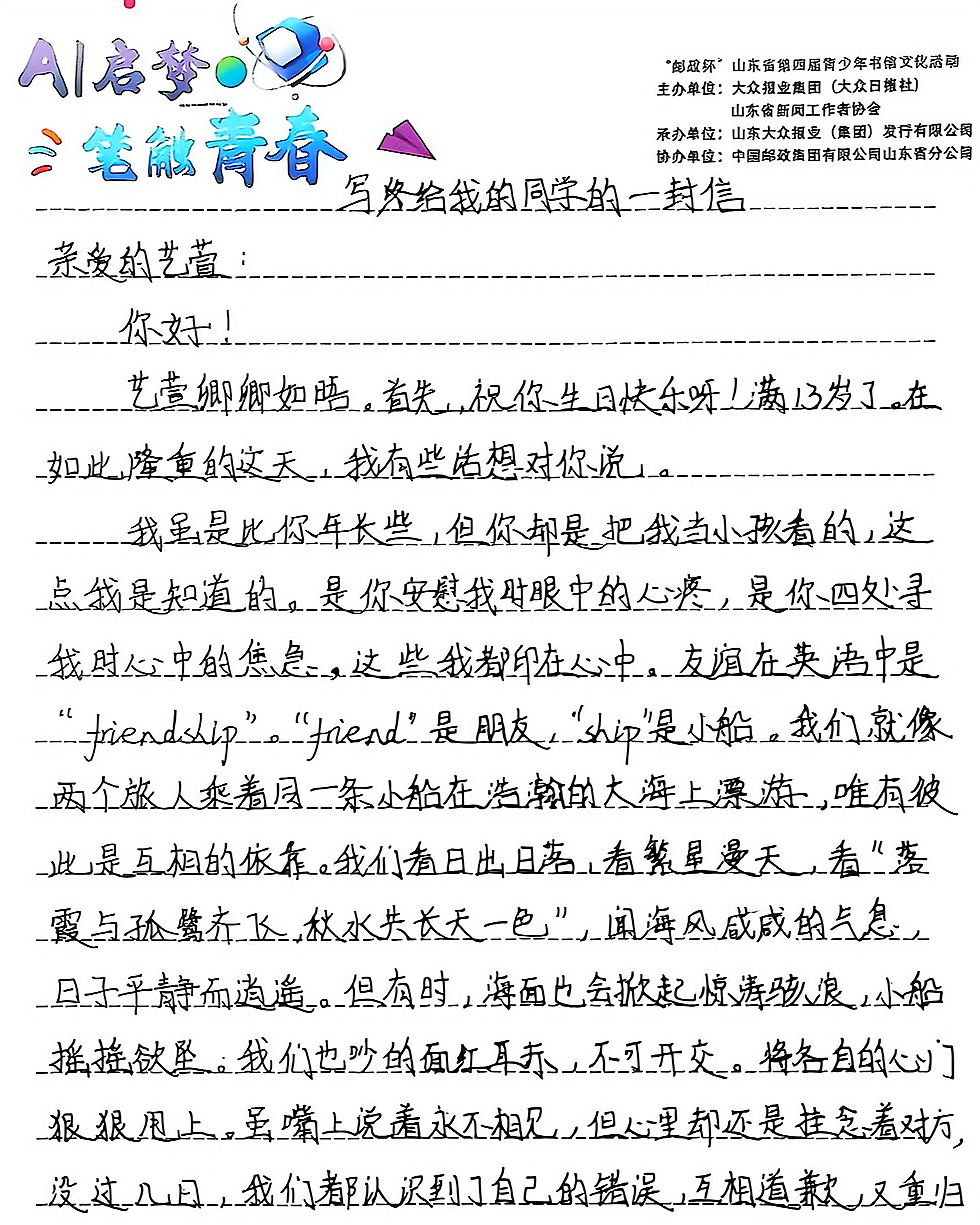 AI启梦
笔触青春
"邮政杯"山东省第四届青少年书信文化活动
主办单位：大众报业集团（大众日报社）
山东省新闻工作者协会
承办单位：山东大众报业（集团）发行有限公司
协办单位：中国邮政集团有限公司山东省分公司
写给我的同学的一封信
亲爱的艺萱：
你好！
艺萱卿卿如晤。首先，祝你生日快乐呀！满13岁了。在
如此隆重的这天，我有些话想对你说。
我虽是比你年长些，但你却是把我当小孩看的，这
点我是知道的。是你安慰我时眼中的心疼，是你四处寻
我时心中的焦急。这些我都印在心中。友谊在英语中是
“friendship”。“friend”是朋友，“ship”是小船。我们就像
两个旅人乘着同一条小船在浩瀚的大海上漂游，唯有彼
此是互相的依靠。我们看日出日落，看繁星漫天，看“落
霞与孤鹭齐飞，秋水共长天一色”，闻海风咸咸的气息，
日子平静而逍遥。但有时，海面也会掀起惊涛骇浪，小船
摇摇欲坠。我们也吵的面红耳赤，不可开交。将各自的心门
狠狠甩上。虽嘴上说着永不相见，但心里却还是挂念着对方，
没过几日，我们都认识到了自己的错误，互相道歉，又重归